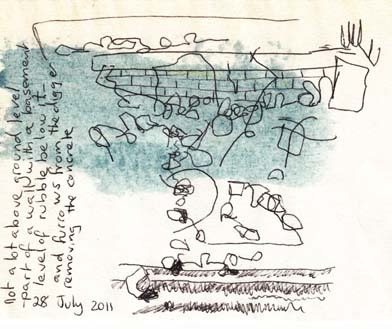 Not a bt above ground level
- part of a wall with a basement
level of rubble below it
and furrows from the digger
removing the concrete
28 July 2011